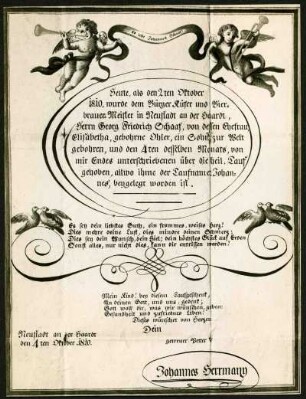 Heute, als den 2ten Oktober
1810, wurde dem Bürger, Küfer und Bier,
brauer, Meister in Neustadt an der Haardt,
Herrn Georg Friedrich Schaaf, von dessen Ehefrau
Elisabetha, gebohrne Ohler, ein Sohn, zur Welt
gebohren, und den 4ten desselben Monats, von
mir Endes unterschriebenen über die heil. Tauf
gehoben, allwo ihme der Taufname, Johan-
nes, beygelegt worden ist,
Es sey dein liebstes Guth, ein frommes, weises Herz!
Dies mehre deine Lust, dies mindre deinen Schmerz;
Dies sey dein Wunsch, dein Ziel; dein höchstes Glück auf Erden
Sonst alles, nur nicht dies, kann dir entrissen werden!
Mein Kind, bey diesem Taufgeschenk,
An deinen Bott, und uns, gedenk;
Gott woll' dir, was wir wünschen, geben:
Gesundheit und zufriednes Leben!
Dieses wünschet von Herzen
Dein
Neustadt an der Haardt getreuer Petter
den 4ten Oktober 1810.
Johannes Herrmann